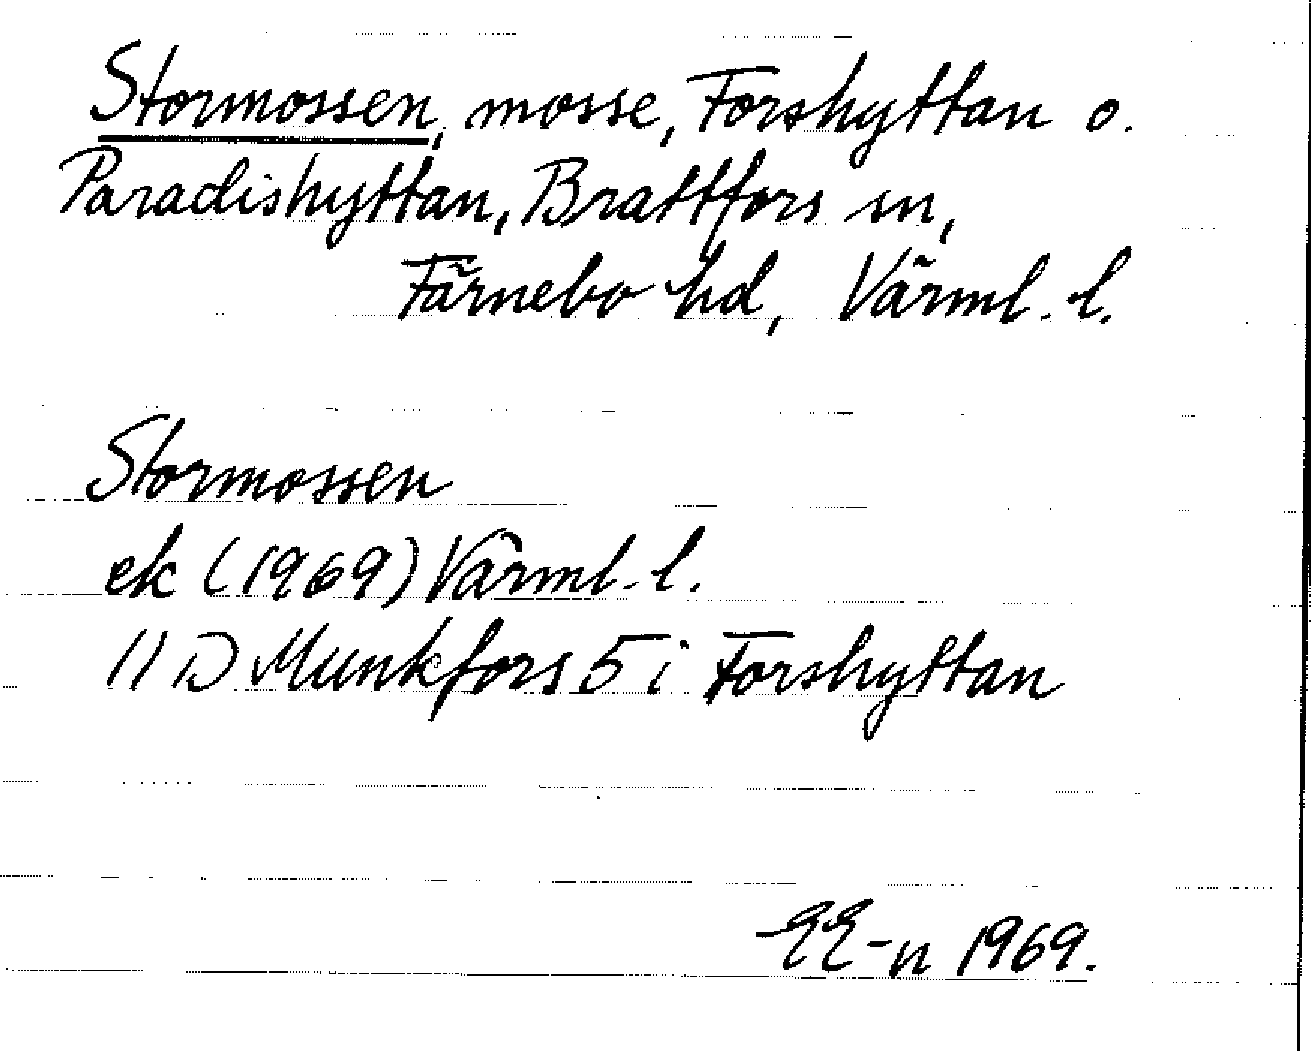 Stormossen, mosse, Forshyttan o.
Paradishyttan, Brattfors sn,
Färnebo hd, Värml. l.
Stormossen
ek (1969) Värml. l.
11 D Munkfors 5 i Forshyttan
EE-n 1969.